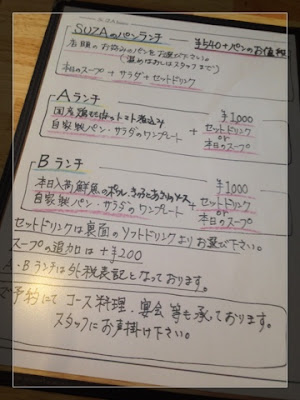 SUZAのパンランチ ¥540+パンのお値段
店頭のお好みのパンをお選び下さい。
(温めなおしはスタッフまで)
本日のスープ+サラダ+セットドリンク
Aランチ ¥1,000
国産鶏のトマト煮込み
自家製パン・サラダのワンプレート
+セットドリンク
or
本日のスープ
Bランチ ¥1000
本日入荷鮮魚のポワレ
自家製パン・サラダのワンプレート
+セットドリンク
or
本日のスープ
セットドリンクは裏面のソフトドリンクよりお選び下さい。
スープの追加は+¥200
A・Bランチは外税表記となっております。
ご予約にてコース料理・宴会等も承っております。
スタッフにお声掛け下さい。